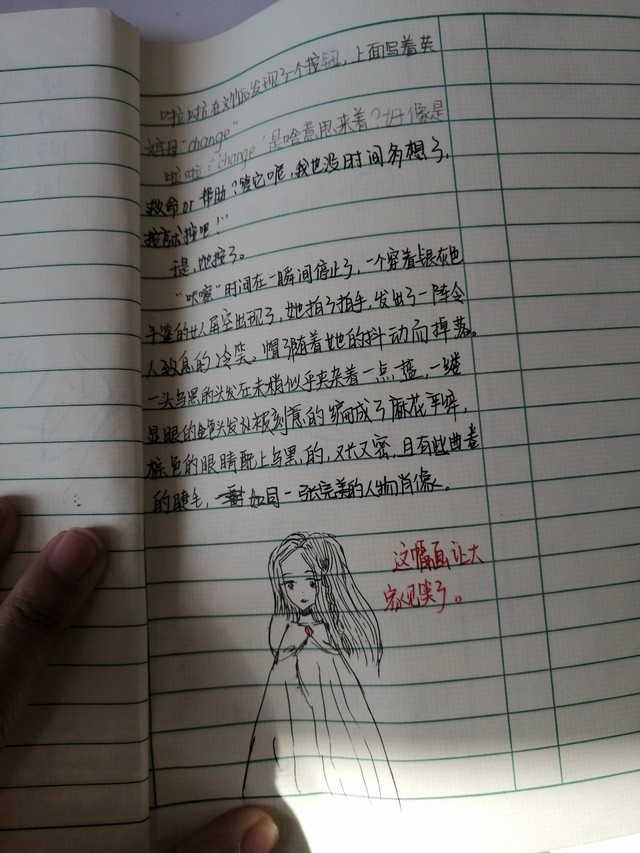 啦啦在文后发现了一个按钮，上面写着英
文字母"change"
啦啦："change"是啥意思来着？好像是
救命or帮助？管它呢，我也没时间多想了，
按吧！"
是，她按了。
"咔嚓"时间在一瞬间停止了，一个穿着银灰色
的女人屏空出现了，她拍了拍手，发出了一阵令
人致息的冷笑。帽子随着她的抖动而掉落。
一头乌黑的头发在末梢似乎夹杂着一点蓝，一缕
显眼的金色头发被刻意的编成了麻花
棕色的眼睛配上乌黑的，又长又密，且有些曲卷
的睫毛，如同一张完美的人物肖像。
这幅画让大
家见笑了。